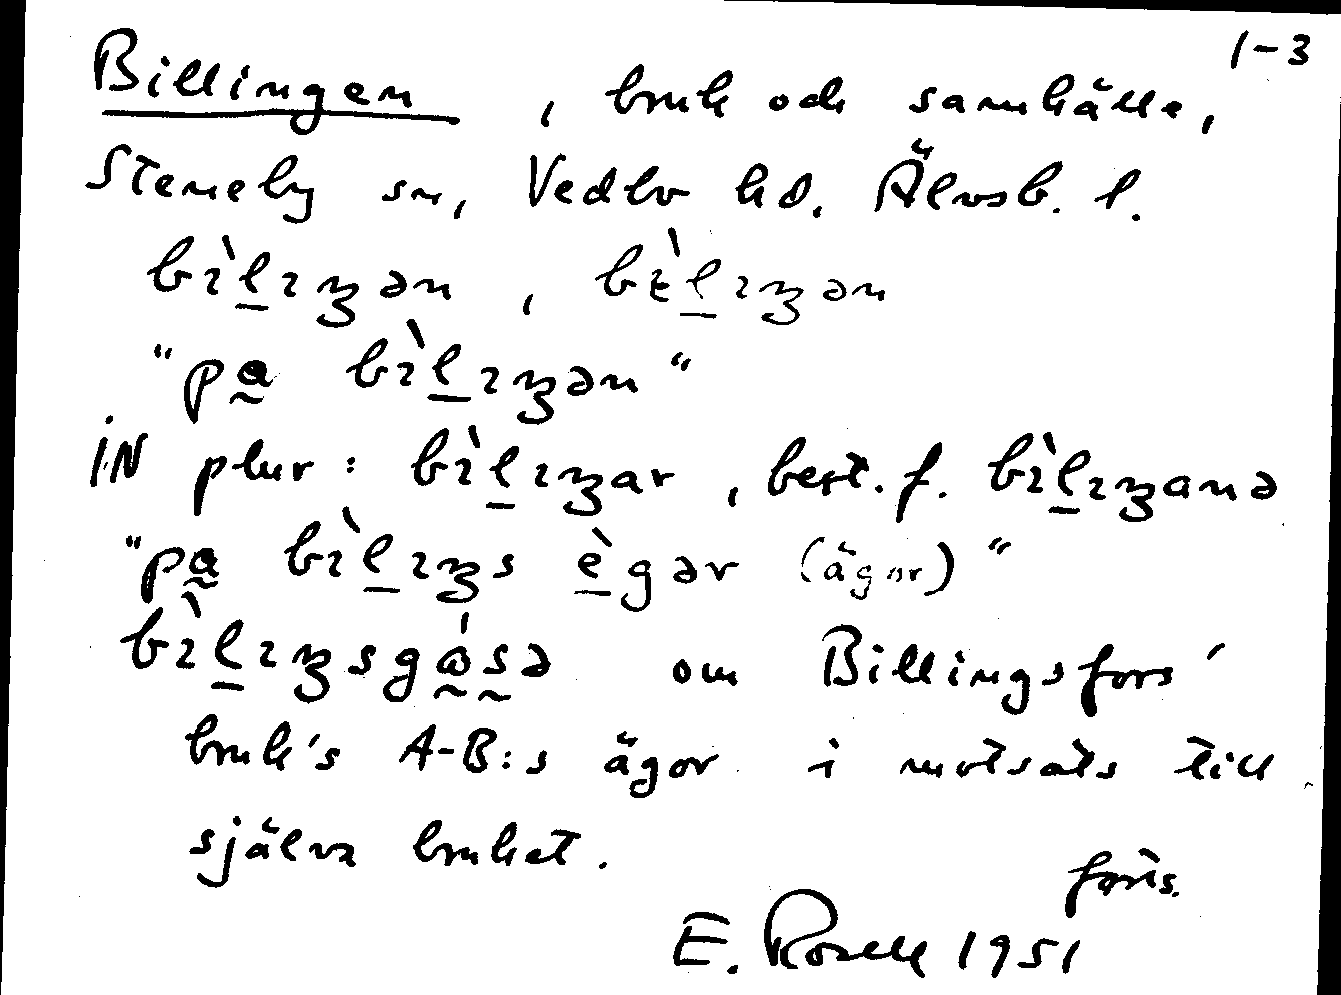 1-3
Billingen, bruk och samhälle,
Steneby sn, Vedbo hd. Älvsb. l.
bɪ̀l̲ɪŋən, bɪ̀l̲ɪŋən
"pa̰ bɪ̀l̲ɪŋən"
IN plur: bɪ̀l̲ɪŋar, best. f. bɪ̀l̲ɪŋanə
"pa̰ bɪ̀l̲ɪŋs è̲gər (ägor)"
bɪ̀l̲ɪŋsgɷ̰́s̰ə om Billingsfors'
bruk's A-B:s ägor i motsats till
själva bruket.
forts.
E. Rosell 1951